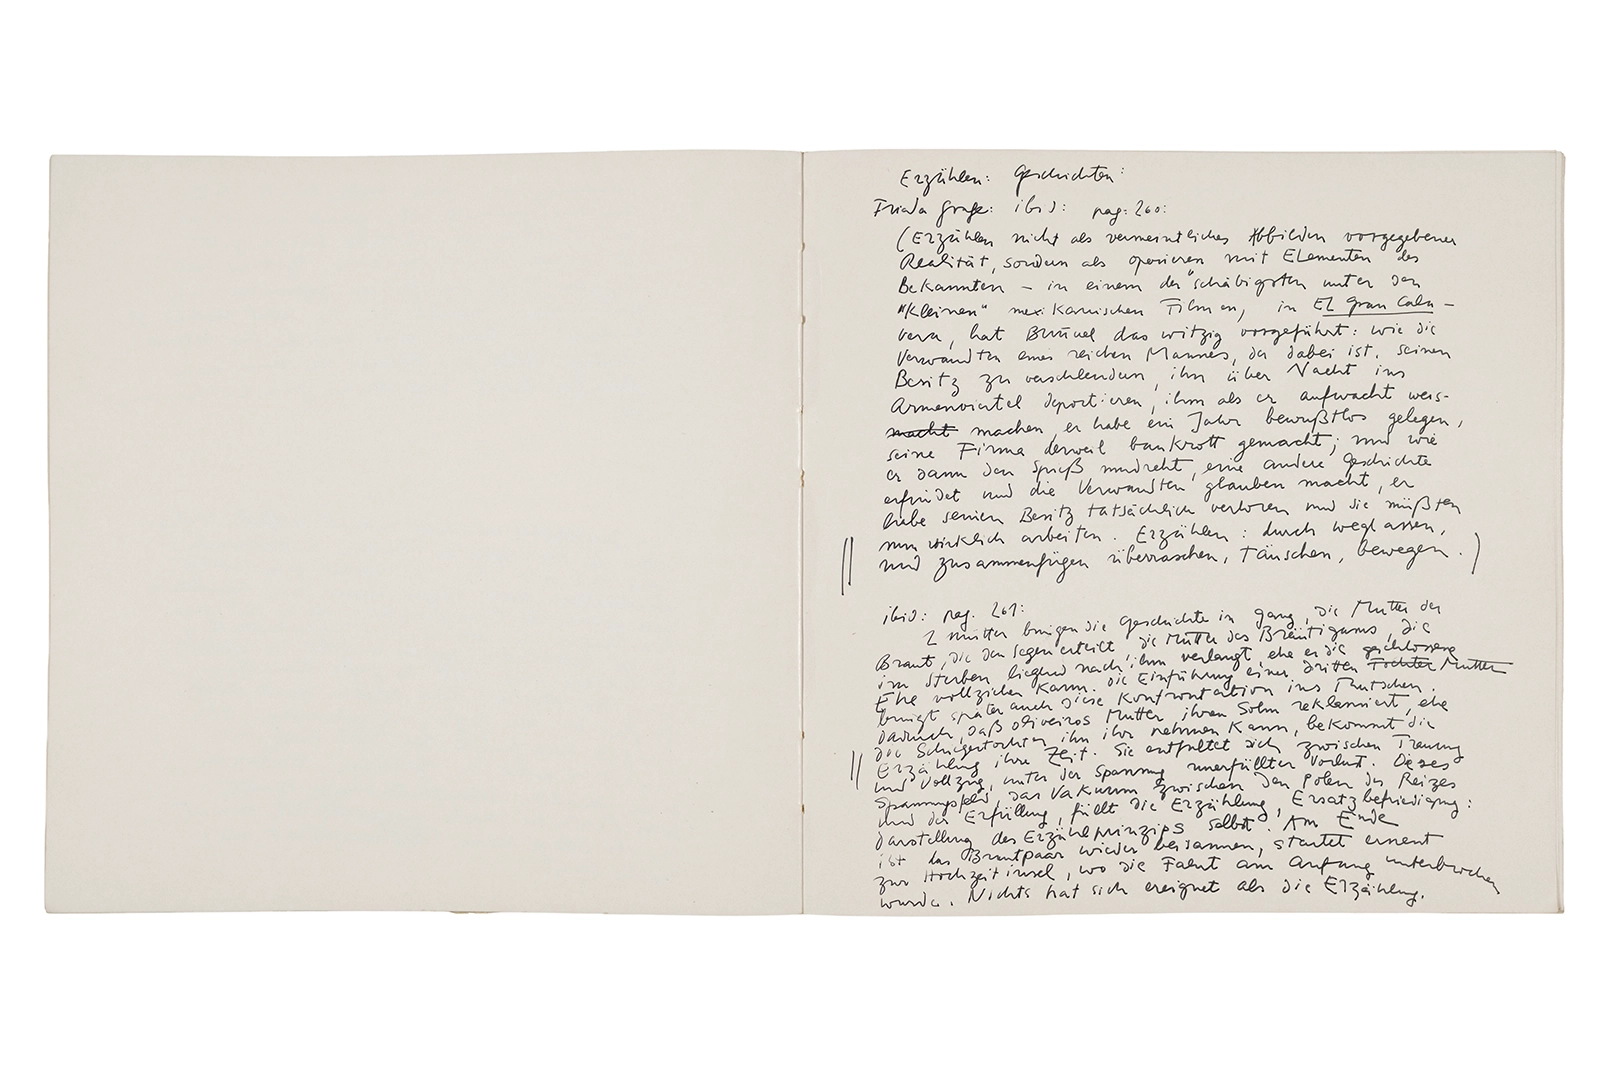 Erzählen: Geschichten:
Frieda Grafe: ibid: pag. 260:
(Erzählen nicht als vermeintliches Abbilden vorgegebener
Realität, sondern als operieren mit Elementen des
Bekannten – in einem der "schäbigsten unter den
"Kleinen" mexikanischen Filmen, in El Gran Cala-
vera, hat Buñuel das witzig vorgeführt: wie die
Verwandten eines reichen Mannes, der dabei ist, seinen
Besitz zu verschleudern, ihn über Nacht ins
Armenviertel deportieren, ihm als er aufwacht weis-
macht machen, er habe ein Jahr bewußtlos gelegen,
seine Firma derweil bankrott gemacht; und wie
er dann den Spieß umdreht, eine andere Geschichte
erfindet und die Verwandten glauben macht, er
habe seinen Besitz tatsächlich verloren und sie müßten
nun wirklich arbeiten. Erzählen: durch weglassen,
und zusammenfügen überraschen, täuschen, bewegen.)
ibid: pag. 261:
2 Mütter bringen die Geschichte in Gang, die Mutter der
Braut, die den Segen erteilt, die Mutter des Bräutigams, die
im Sterben liegend nach ihm verlangt, ehe er die geschlossene
Ehe vollziehen kann. Die Einführung einer dritten Tochter Mutter
bringt später auch diese Konfrontation ins Rutschen.
Dadurch, daß Oliveiros Mutter ihren Sohn reklamiert, ehe
die Schwiegertochter ihn ihr nehmen kann, bekommt die
Erzählung ihre Zeit. Sie entfaltet sich zwischen Trauung
und Vollzug, unter der Spannung unerfüllter Vorlust. Dieses
Spannungsfeld, das Vakuum zwischen den Polen des Reizes
und der Erfüllung, füllt die Erzählung, Ersatzbefriedigung:
Darstellung des Erzählprinzips selbst. Am Ende
ist das Brautpaar wieder beisammen, startet erneut
zur Hochzeitinsel, wo die Fahrt am Anfang unterbrochen
wurde. Nichts hat sich ereignet als die Erzählung.